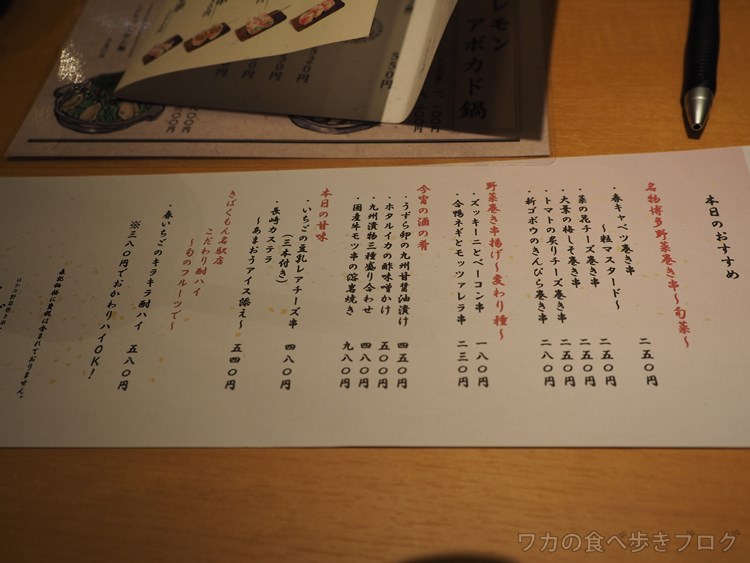 レモン
アボカド鍋
本日のおすすめ
名物博多野菜巻き串〜旬菜〜
・春キャベツ巻き串 二五〇円
〜粒マスタード〜
・菜の花チーズ巻き串 二五〇円
・大葉の梅しそ巻き串 二五〇円
・トマトの炙りチーズ巻き串 二五〇円
・新ゴボウのきんぴら巻き串 二八〇円
野菜巻き串揚げ〜変わり種〜
・ズッキーニとベーコン串 一八〇円
・合鴨ネギとモッツァレラ串 二三〇円
今宵の酒の肴
・うずら卵の九州甘醤油漬け 四五〇円
・ホタルイカの酢味噌かけ 五〇〇円
・九州漬物三種盛り合わせ 四八〇円
・国産牛モツ串の溶岩焼き 九八〇円
本日の甘味
・いちごの豆乳レアチーズ串
（三本付き） 四八〇円
・長崎カステラ
〜あまおうアイス添え〜 五四〇円
きばくもん名駅店
こだわり酎ハイ
〜旬のフルーツで〜
・春いちごのキラキラ酎ハイ 五八〇円
※三八〇円でおかわりハイOK！
表記価格に消費税は含まれておりません。
ワカの食べ歩きブログ